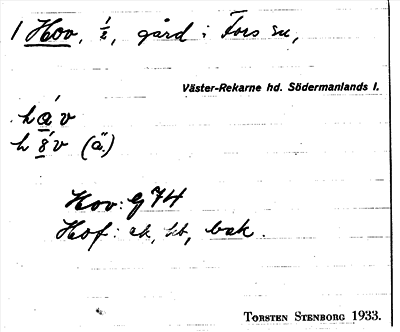 1 Hov, ½, gård i Fors sn,
Väster-Rekarne hd. Södermanlands l.
háv
h8́v (ä.)
Hov: G 74
Hof: ek, bak.
Torsten Stenborg 1933.